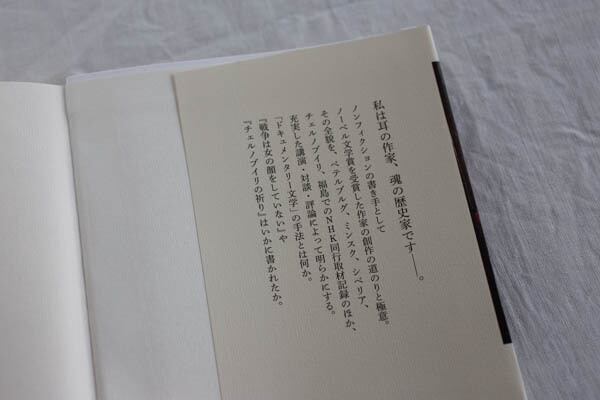 私は耳の作家、魂の歴史家です――。
ノンフィクションの書き手として
ノーベル文学賞を受賞した作家の創作の道のりと極意。
その全貌を、ペテルブルグ、ミンスク、シベリア、
チェルノブイリ、福島でのNHK同行取材記録のほか、
充実した講演・対談・評論によって明らかにする。
「ドキュメンタリー文学」の手法とは何か。
『戦争は女の顔をしていない』や
『チェルノブイリの祈り』はいかに書かれたか。